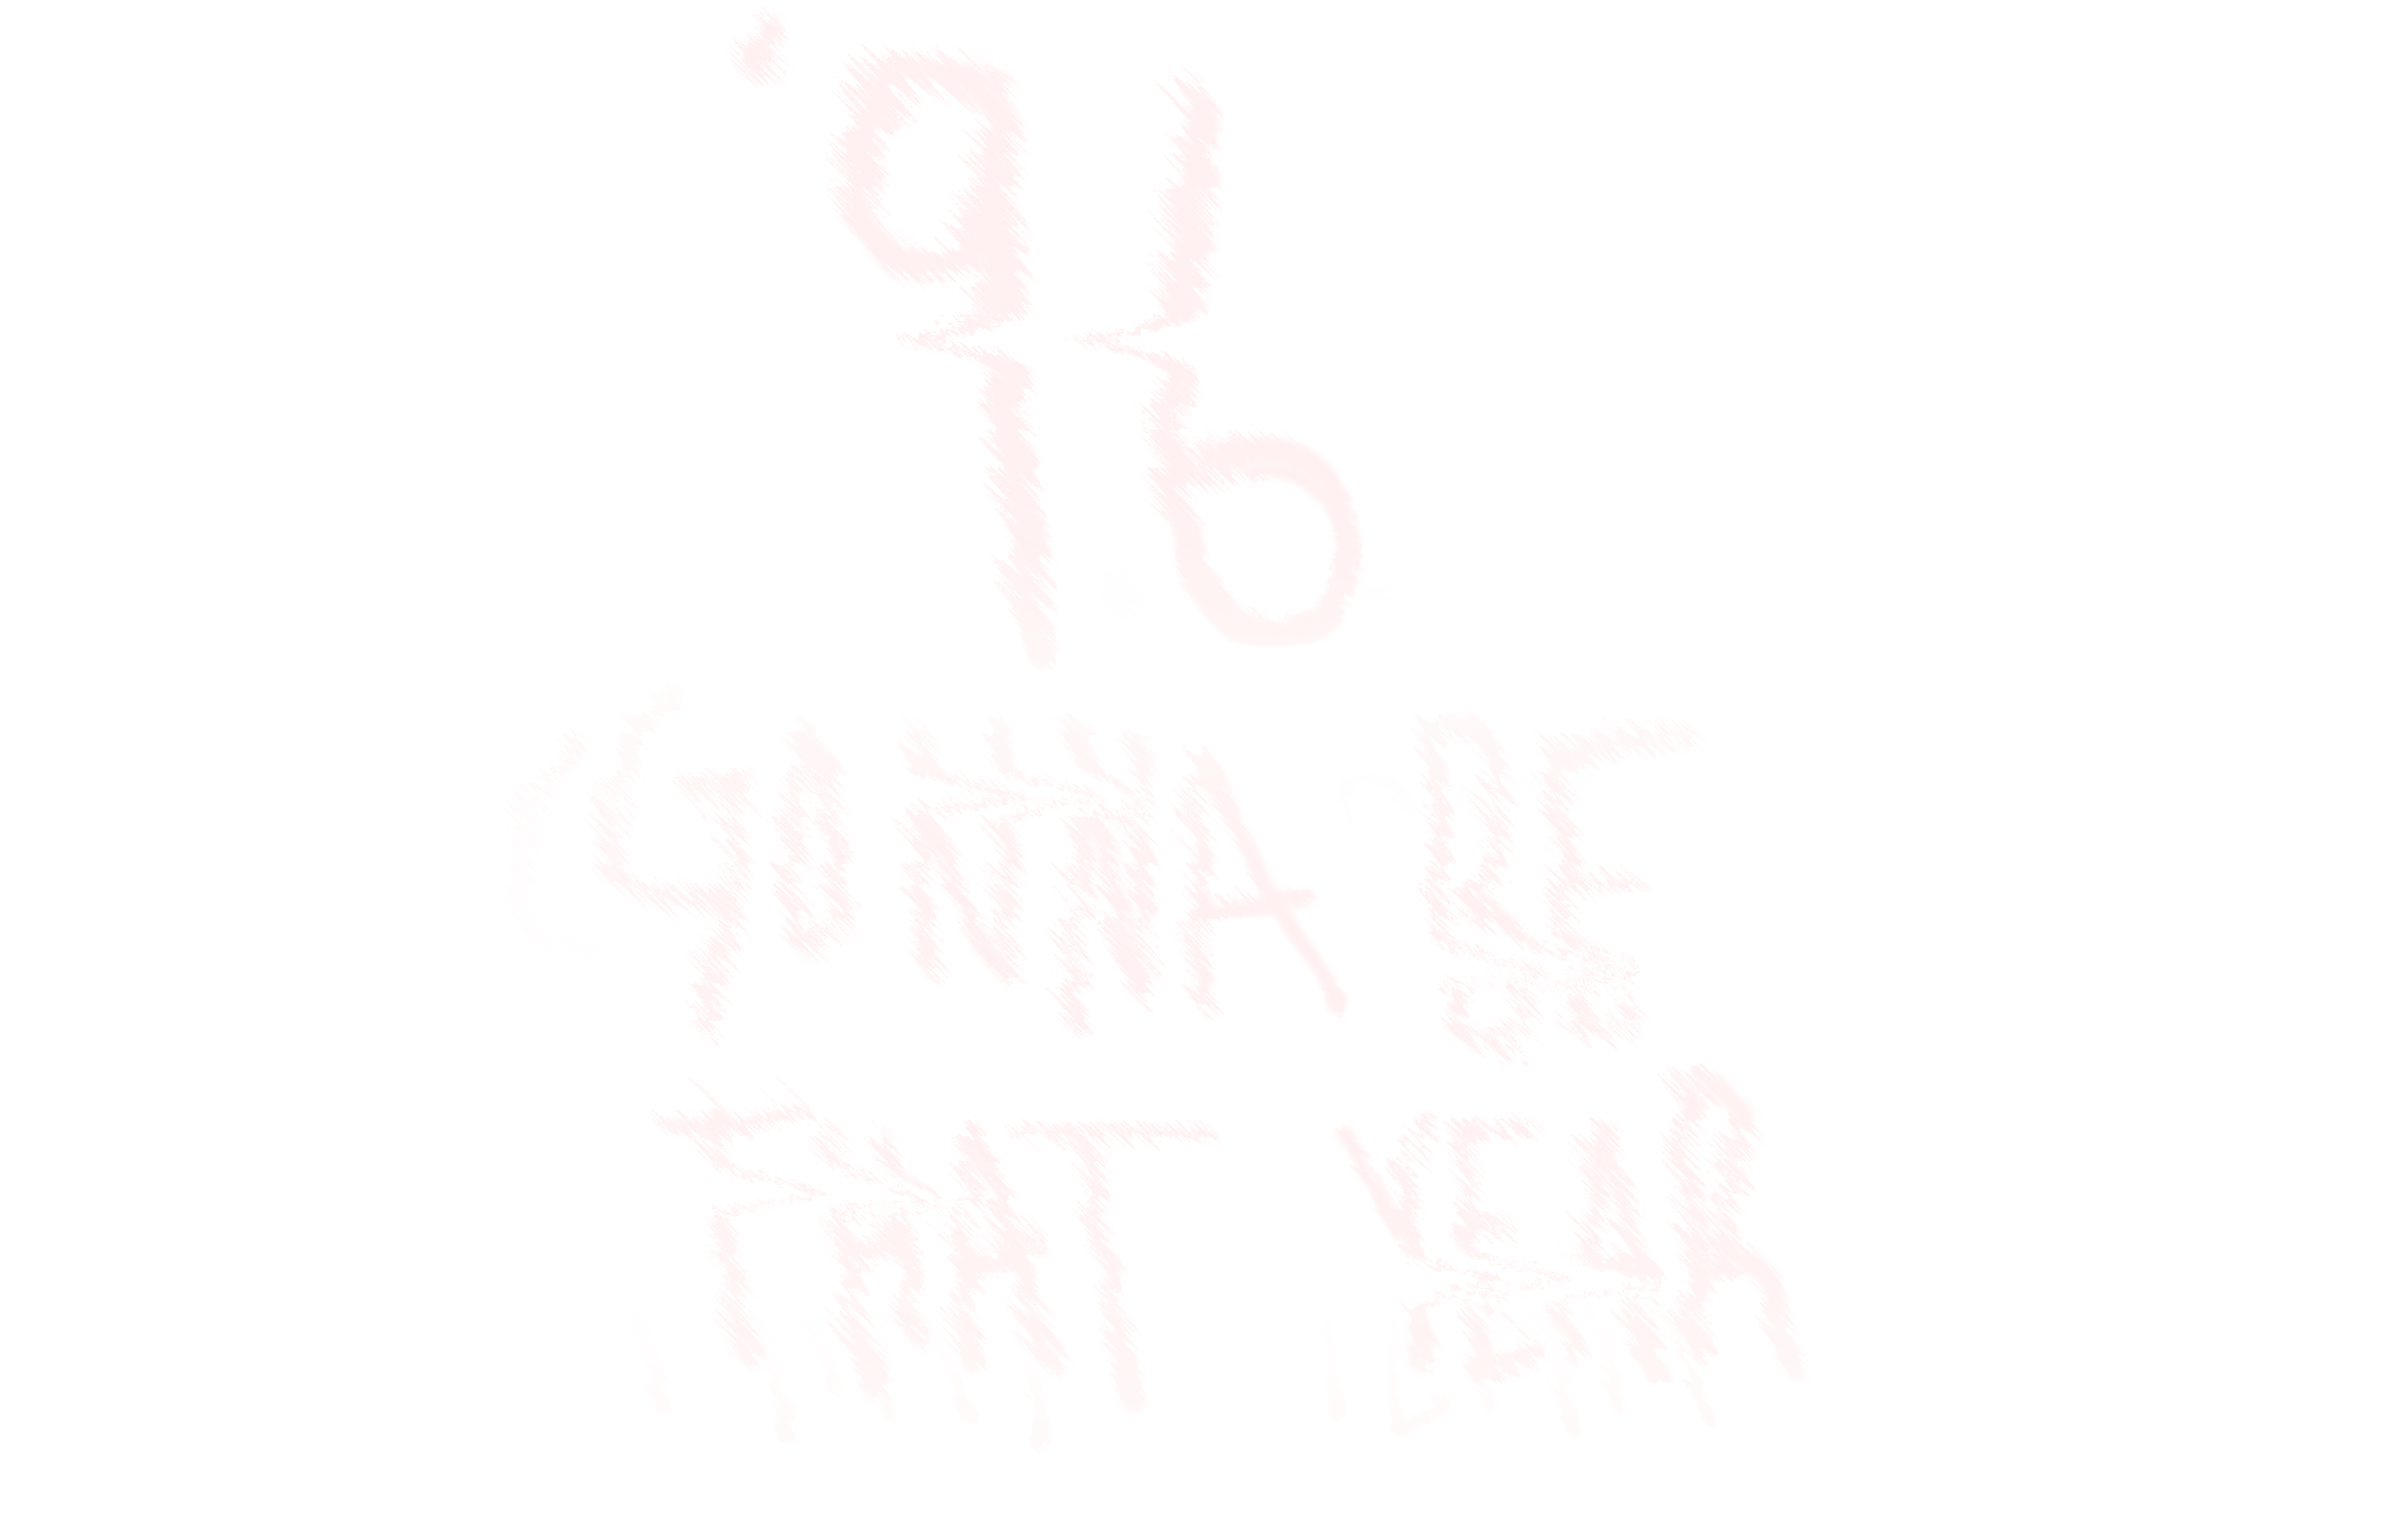 '96
GONNA BE
THAT YEAR